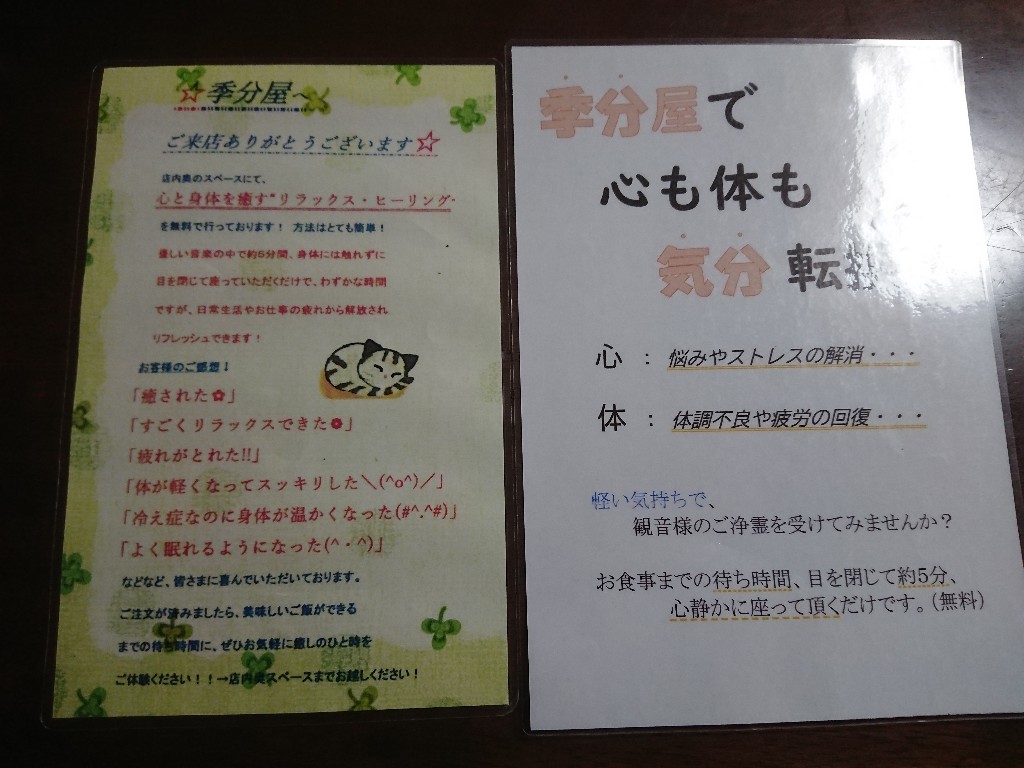 ☆季分屋～
ご来店ありがとうございます☆
店内奥のスペースにて、
心と身体を癒す"リラックス・ヒーリング"
を無料で行っております！ 方法はとても簡単！
優しい音楽の中で約5分間、身体には触れずに
目を閉じて座っていただくだけで、わずかな時間
ですが、日常生活やお仕事の疲れから解放され
リフレッシュできます！
お客様のご感想！
「癒された✿」
「すごくリラックスできた❁」
「疲れがとれた!!」
「体が軽くなってスッキリした＼(^o^)／」
「冷え症なのに身体が温かくなった(#^.^#)」
「よく眠れるようになった(^・^)」
などなど、皆さまに喜んでいただいております。
ご注文が済みましたら、美味しいご飯ができる
までの待ち時間に、ぜひお気軽に癒しのひと時を
ご体験ください！！→店内奥スペースまでお越しください！
季分屋で
心も体も
気分転換
心：悩みやストレスの解消・・・
体：体調不良や疲労の回復・・・
軽い気持ちで、
観音様のご浄霊を受けてみませんか？
お食事までの待ち時間、目を閉じて約5分、
心静かに座って頂くだけです。（無料）